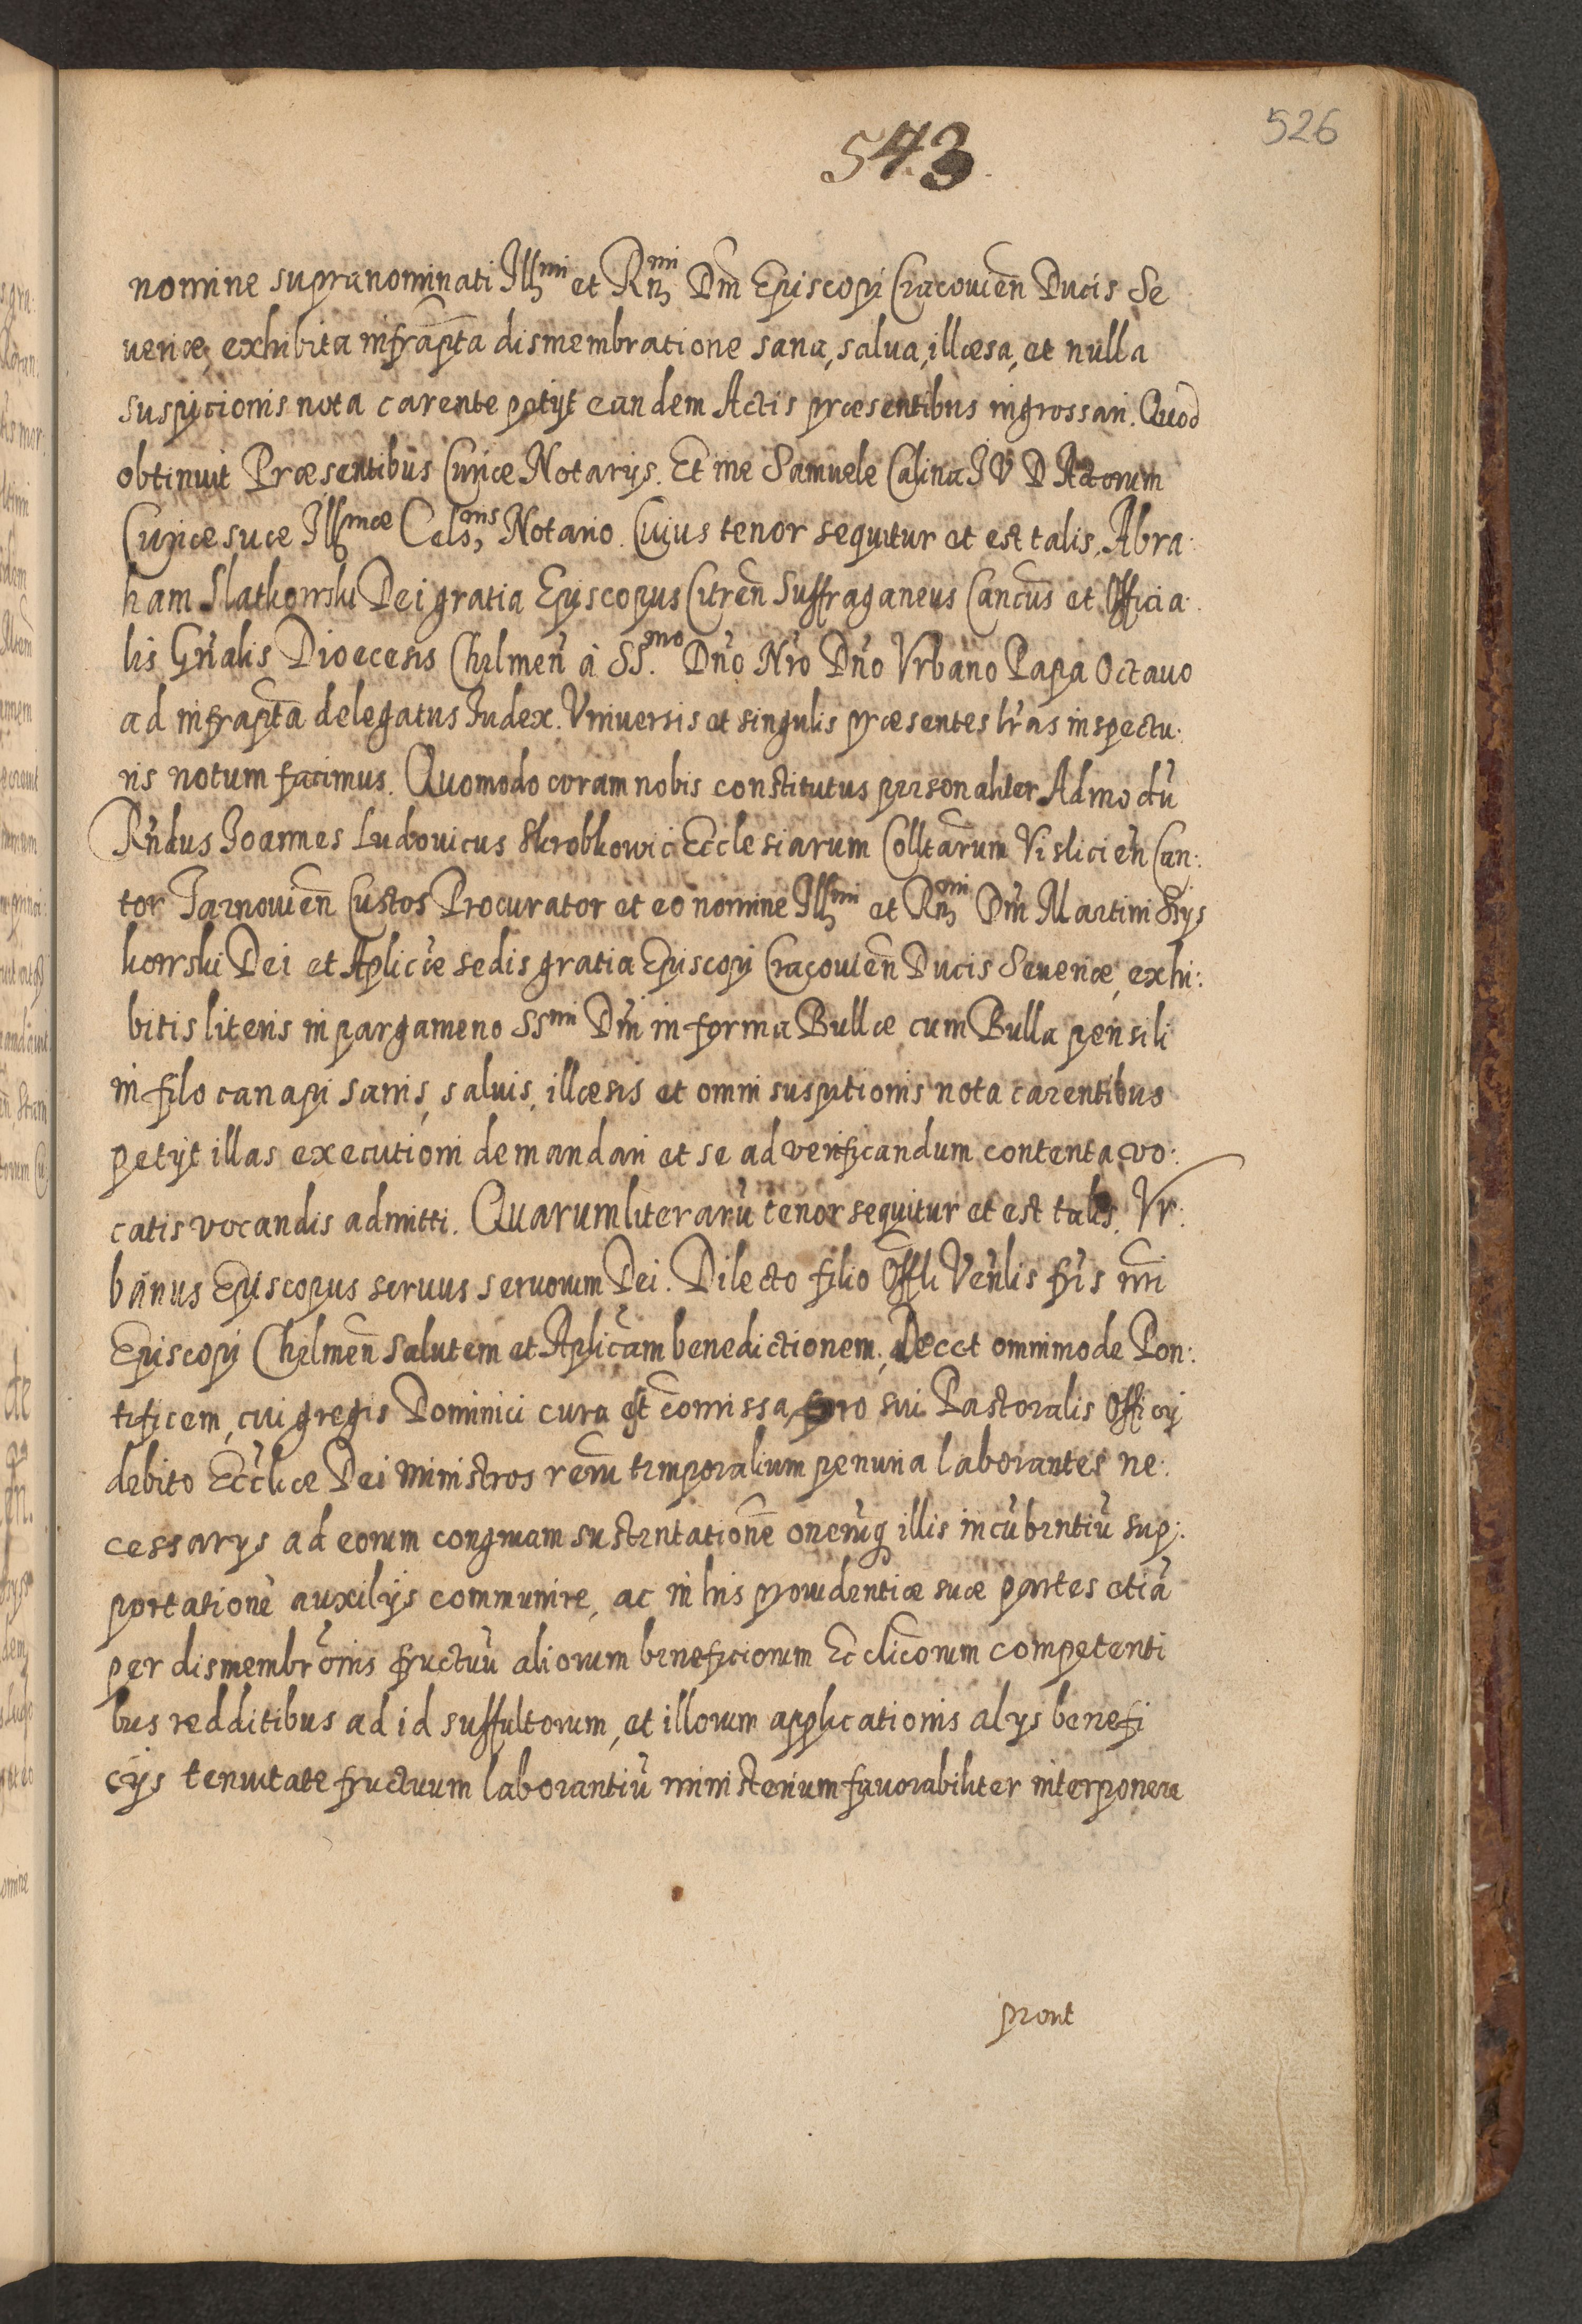 526
543
nomine supranominati Illmi et Rmi Dni Episcopi Cracouien Ducis Se
ueriæ, exhibita infrapta dismembratione sana, salua, illæsa, et nulla
suspicionis nota carente petijt eandem Actis præsentibus ingrossari. Quod
obtinuit Præsentibus Curiæ Notarijs. Et me Samuele Calina I V D Actorum
Curiæ suæ Illmæ Celsnis Notario. Cuius tenor sequitur et est talis. Abra:
ham Slatkowski Dei gratia Episcopus Citren Suffraganeus Cancus et Officia:
lis Gnalis Diœcesis Chelmen à SS.mo Dno Nro Dno Vrbano Papa Octauo
ad infrapta delegatus Iudex. Vniuersis et singulis præsentes lras inspectu:
ris notum facimus. Quomodo coram nobis constitutus personaliter Admodũ
Rndus Ioannes Ludouicus Skrobkowic Ecclesiarum Colltarum Vislicien Can:
tor Tarnouien Custos Procurator et eo nomine Illmi et Rmi Dni Martini Szys
kowski Dei et Aplicæ sedis gratia Episcopi Cracouien Ducis Seueriæ, exhi:
bitis literis in pargameno SSmi Dni in forma Bullæ cum Bulla pensili
in filo canapi sanis, saluis, illæsis et omni suspitionis nota carentibus
petijt illas executioni demandari et se ad verificandum contenta vo:
catis vocandis admitti. Quarum literarũ tenor sequitur et est talis. Vr:
banus Episcopus seruus seruorum Dei. Dilecto filio Offli Venlis fris nri
Episcopi Chelmen salutem et Aplicam benedictionem, Decet omnimode Pon:
tificem, cui gregis Dominici cura est comissa, pro sui Pastoralis Officij
debito Ecclicæ Dei ministros rerum temporalium penuria laborantes ne:
cessarys ad eorum congruam sustentatione onerũq illis incũbentiũ sup:
portationẽ auxilijs communire, ac in his prouidentiæ suæ partes etiã
per dismembronis fructuũ aliorum beneficiorum Ecclicorum competenti
bus redditibus ad id suffultorum, et illorum applicationis alys benefi
cijs tenuitate fructuum laborantiũ ministerium fauorabiliter interponere
prout